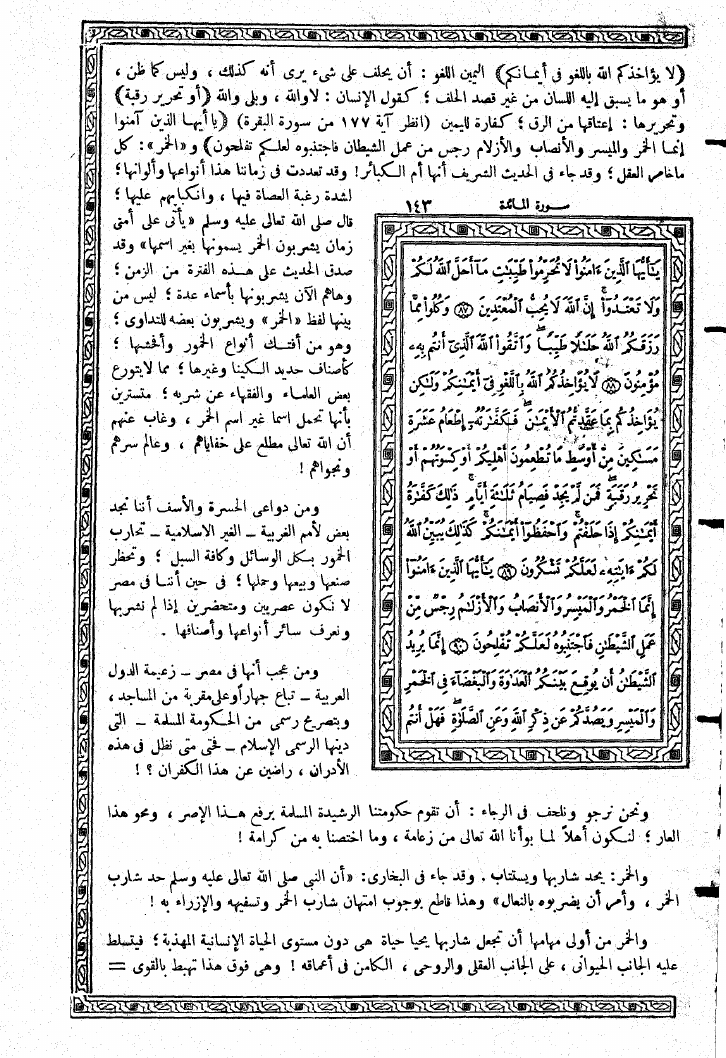 (لا يؤاخذكم الله باللغو فى أيمانكم) اليمين اللغو : أن يحلف على شىء يرى أنه كذلك ، وليس كما ظن ،
أو هو ما يسبق إليه اللسان من غير قصد الحلف ؛ كقول الإنسان : لاوالله ، وبلى والله (أو تحرير رقبة)
وتحريرها : إعتاقها من الرق ؛ كفارة لليمين (انظر آية ١٧٧ من سورة البقرة) (ياأيها الذين آمنوا
إنما الخمر والميسر والأنصاب والأزلام رجس من عمل الشيطان فاجتنبوه لعلكم تفلحون) و«الخمر» : كل
ماخامر العقل ؛ وقد جاء فى الحديث الشريف أنها أم الكبائر! وقد تعددت فى زماننا هذا أنواعها وألوانها ؛
لشدة رغبة العصاة فيها ، وانكبابهم عليها ؛
قال صلى الله تعالى عليه وسلم «يأتى على أمتى
زمان يشربون الخمر يسمونها بغير اسمها» وقد
صدق الحديث على هذه الفترة من الزمن ؛
وهاهم الآن يشربونها بأسماء عدة ؛ ليس من
بينها لفظ «الخمر» ويشربون بعضه للتداوى ؛
وهو من أفتك أنواع الخمور وأفحشها ؛
كأصناف حديد الكينا وغيرها ؛ مما لايتورع
بعض العلماء والفقهاء عن شربه ؛ متسترين
بأنها تحمل اسما غير اسم الخمر ، وغاب عنهم
أن الله تعالى مطلع على خفاياهم ، وعالم سرهم
ونجواهم !
ومن دواعى الحسرة والأسف أننا نجد
بعض لأمم الغربية ــ الغير الاسلامية ــ تحارب
الخمور بكل الوسائل وكافة السبل ؛ وتحظر
صنعها وبيعها وحملها ؛ فى حين أننا فى مصر
لا نكون عصريين ومتحضرين إذا لم نشربها
ونعرف سائر أنواعها وأصنافها .
ومن عجب أنها فى مصر ــ زعيمة الدول
العربية ــ تباع جهاراً وعلى مقربة من المساجد ،
وبتصريح رسمى من الحكومة المسلمة ــ التى
دينها الرسمى الإسلام ــ فحتى متى نظل فى هذه
الأدران ، راضين عن هذا الكفران ؟ !
سورة المائدة ١٤٣
يَٰٓأَيُّهَا ٱلَّذِينَ ءَامَنُوا۟ لَا تُحَرِّمُوا۟ طَيِّبَٰتِ مَآ أَحَلَّ ٱللَّهُ لَكُمْ
وَلَا تَعْتَدُوٓا۟ إِنَّ ٱللَّهَ لَا يُحِبُّ ٱلْمُعْتَدِينَ ٨٧ وَكُلُوا۟ مِمَّا
رَزَقَكُمُ ٱللَّهُ حَلَٰلًا طَيِّبًا وَٱتَّقُوا۟ ٱللَّهَ ٱلَّذِىٓ أَنتُم بِهِۦ
مُؤْمِنُونَ ٨٨ لَا يُؤَاخِذُكُمُ ٱللَّهُ بِٱللَّغْوِ فِىٓ أَيْمَٰنِكُمْ وَلَٰكِن
يُؤَاخِذُكُم بِمَا عَقَّدتُّمُ ٱلْأَيْمَٰنَ فَكَفَّٰرَتُهُۥٓ إِطْعَامُ عَشَرَةِ
مَسَٰكِينَ مِنْ أَوْسَطِ مَا تُطْعِمُونَ أَهْلِيكُمْ أَوْ كِسْوَتُهُمْ أَوْ
تَحْرِيرُ رَقَبَةٍ فَمَن لَّمْ يَجِدْ فَصِيَامُ ثَلَٰثَةِ أَيَّامٍ ذَٰلِكَ كَفَّٰرَةُ
أَيْمَٰنِكُمْ إِذَا حَلَفْتُمْ وَٱحْفَظُوٓا۟ أَيْمَٰنَكُمْ كَذَٰلِكَ يُبَيِّنُ ٱللَّهُ
لَكُمْ ءَايَٰتِهِۦ لَعَلَّكُمْ تَشْكُرُونَ ٨٩ يَٰٓأَيُّهَا ٱلَّذِينَ ءَامَنُوٓا۟
إِنَّمَا ٱلْخَمْرُ وَٱلْمَيْسِرُ وَٱلْأَنصَابُ وَٱلْأَزْلَٰمُ رِجْسٌ مِّنْ
عَمَلِ ٱلشَّيْطَٰنِ فَٱجْتَنِبُوهُ لَعَلَّكُمْ تُفْلِحُونَ ٩٠ إِنَّمَا يُرِيدُ
ٱلشَّيْطَٰنُ أَن يُوقِعَ بَيْنَكُمُ ٱلْعَدَٰوَةَ وَٱلْبَغْضَآءَ فِى ٱلْخَمْرِ
وَٱلْمَيْسِرِ وَيَصُدَّكُمْ عَن ذِكْرِ ٱللَّهِ وَعَنِ ٱلصَّلَوٰةِ فَهَلْ أَنتُم
ونحن نرجو ونلحف فى الرجاء : أن تقوم حكومتنا الرشيدة المسلمة برفع هذا الإصر ، ومحو هذا
العار ؛ لنكون أهلاً لما بوأنا الله تعالى من زعامة ، وما اختصنا به من كرامة !
والخمر : يحد شاربها ويستتاب . وقد جاء فى البخارى : «أن النبى صلى الله تعالى عليه وسلم حد شارب
الخمر ، وأمر أن يضربوه بالنعال» وهذا قاطع بوجوب امتهان شارب الخمر وتسفيهه والإزراء به !
والخمر من أولى مهامها أن تجعل شاربها يحيا حياة هى دون مستوى الحياة الإنسانية المهذبة ؛ فيتسلط
عليه الجانب الحيوانى ، على الجانب العقلى والروحى ، الكامن فى أعماقه ! وهى فوق هذا تهبط بالقوى =